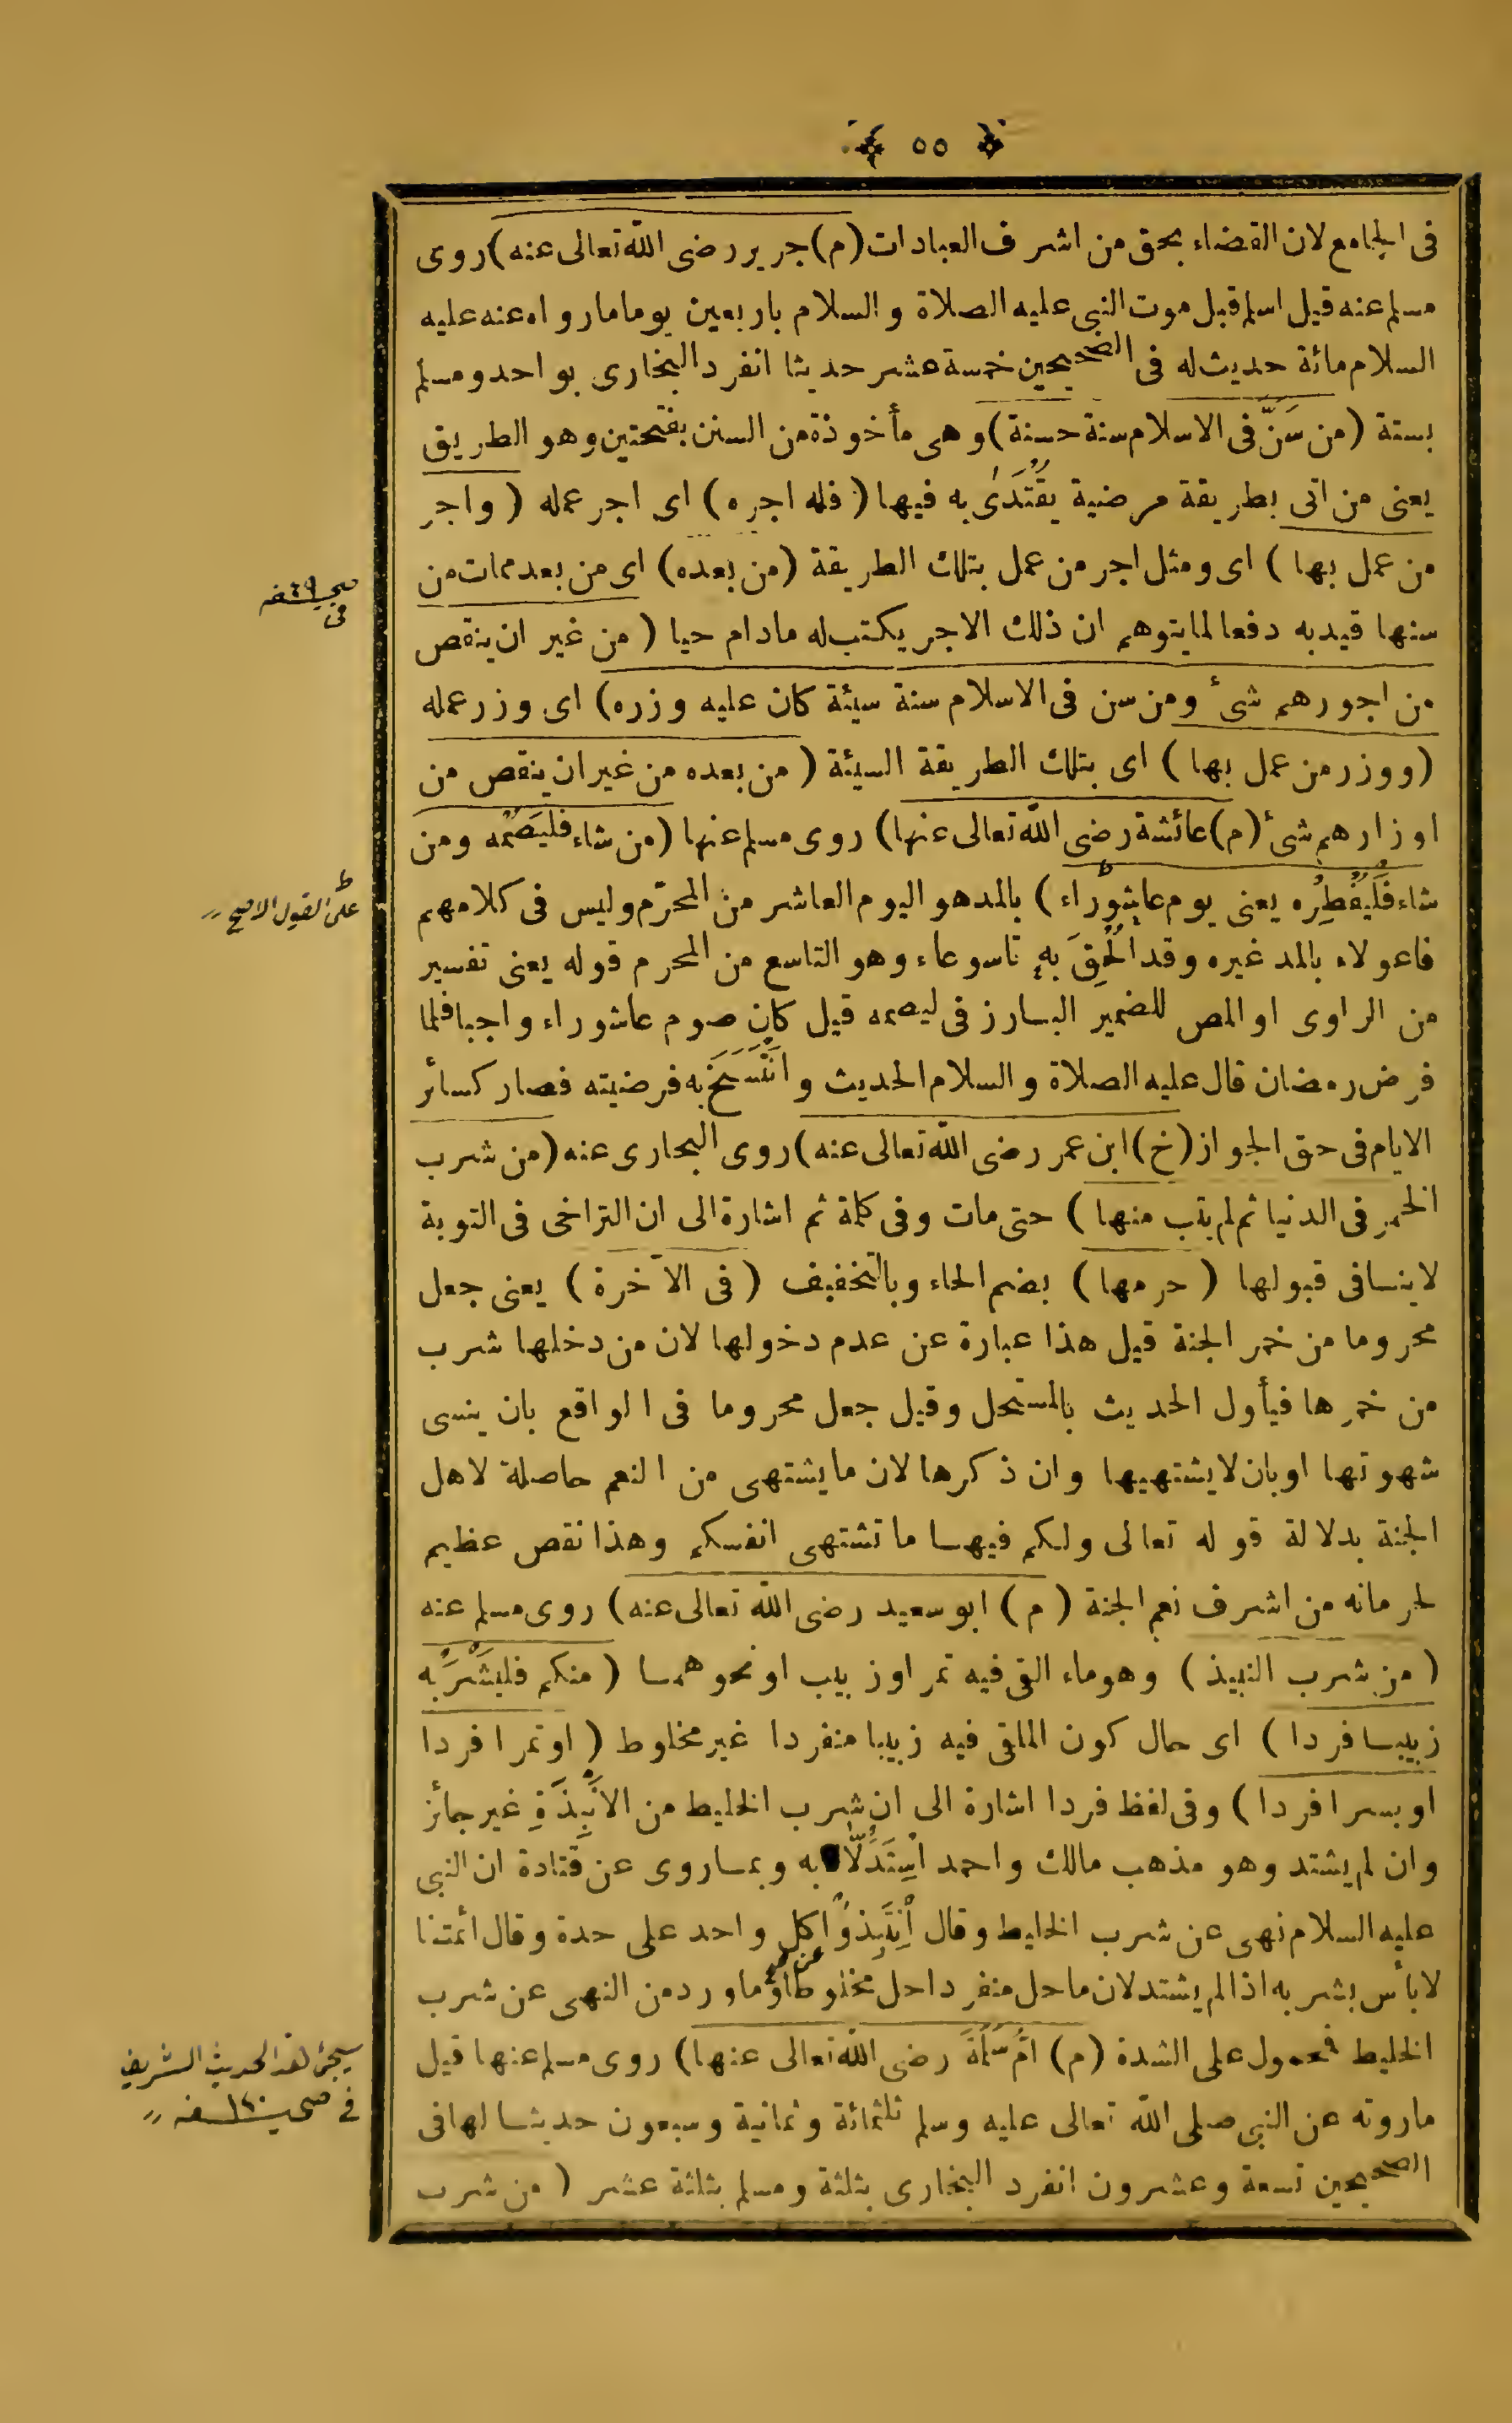 ﴿ ٥٥ ﴾
فى الجامع لان القضاء بحق من اشرف العبادات (م) جرير رضى الله تعالى عنه) روى
مسلم عنه قيل اسلم قبل موت النبى عليه الصلاة والسلام باربعين يوما مارواه عنه عليه
السلام مائة حديث له فى الصحيحين خمسة عشر حديثا انفرد البخارى بواحد ومسلم
بستة (من سَنَّ فى الاسلام سنة حسنة) وهى مأخوذة من السنن بفتحتين وهو الطريق
يعنى من اتى بطريقة مرضية يُقْتَدَى به فيها (فله اجره) اى اجر عمله (واجر
من عمل بها) اى ومثل اجر من عمل بتلك الطريقة (من بعده) اى من بعد ممات من
سنها قيد به دفعا لما يتوهم ان ذلك الاجر يكتب له مادام حيا (من غير ان ينقص
من اجورهم شئ ومن سن فى الاسلام سنة سيئة كان عليه وزره) اى وزر عمله
(ووزر من عمل بها) اى بتلك الطريقة السيئة (من بعده من غير ان ينقص من
اوزارهم شئ (م) عائشة رضى الله تعالى عنها) روى مسلم عنها (من شاء فليَصُمْه ومن
شاء فَلْيُفْطِرْه يعنى يوم عاشوراء) بالمد هو اليوم العاشر من المحرّم وليس فى كلامهم
فاعولاء بالمد غيره وقد اُلْحِقَ به تاسوعاء وهو التاسع من المحرم قوله يعنى تفسير
من الراوى او المص للضمير البارز فى ليصمه قيل كان صوم عاشوراء واجبا فلما
فرض رمضان قال عليه الصلاة والسلام الحديث وانْتَسَخَ به فرضيته فصار كسائر
الايام فى حق الجواز (خ) ابن عمر رضى الله تعالى عنه) روى البخارى عنه (من شرب
الخمر فى الدنيا ثم لم يتب منها) حتى مات وفى كلمة ثم اشارة الى ان التراخى فى التوبة
لاينافى قبولها (حرمها) بضم الحاء وبالتخفيف (فى الآخرة) يعنى جعل
محروما من خمر الجنة قيل هذا عبارة عن عدم دخولها لان من دخلها شرب
من خمرها فيأول الحديث بالمستحل وقيل جعل محروما فى الواقع بان ينسى
شهوتها او بان لايشتهيها وان ذكرها لان مايشتهى من النعم حاصلة لاهل
الجنة بدلالة قوله تعالى ولكم فيها ما تشتهى انفسكم وهذا نقص عظيم
لحرمانه من اشرف نعم الجنة (م) ابو سعيد رضى الله تعالى عنه) روى مسلم عنه
(من شرب النبيذ) وهو ماء القى فيه تمر او زبيب او نحوهما (منكم فليَشْرَبْه
زبيبا فردا) اى حال كون الملقى فيه زبيبا منفردا غير مخلوط (او تمرا فردا
او بسرا فردا) وفى لفظ فردا اشارة الى ان شرب الخليط من الانْبِذَةِ غير جائز
وان لم يشتد وهو مذهب مالك واحمد اسْتَدَلَّا به وبما روى عن قتادة ان النبى
عليه السلام نهى عن شرب الخليط وقال اِنْتَبِذُوا كل واحد على حدة وقال ائمتنا
لابأس بشربه اذا لم يشتد لان ماحل منفردا حل مخلوطا وماورد من النهى عن شرب
الخليط فمحمول على الشدة (م) امّ سَلَمَةَ رضى الله تعالى عنها) روى مسلم عنها قيل
ماروته عن النبى صلى الله تعالى عليه وسلم ثلثمائة وثمانية وسبعون حديثا لها فى
الصحيحين تسعة وعشرون انفرد البخارى بثلثة ومسلم بثلثة عشر (من شرب
على القول الاصح
سيجئ هذا الحديث الشريف